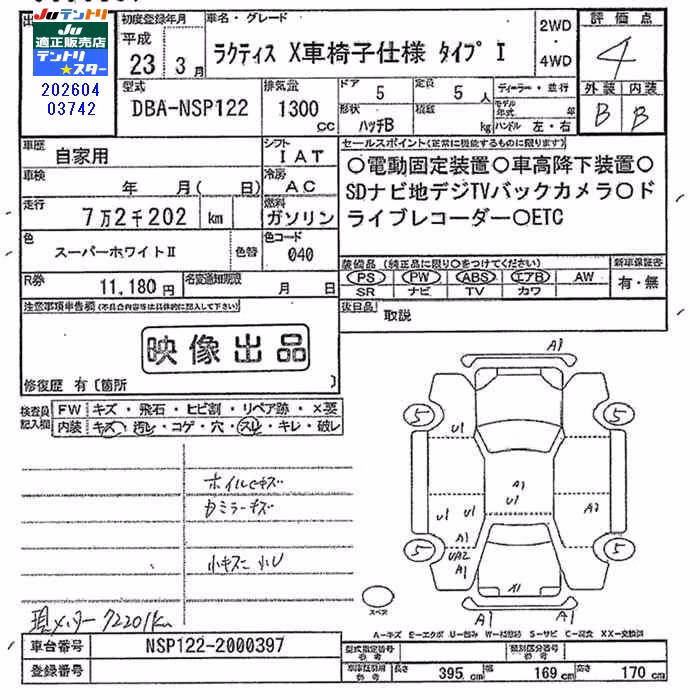 Juテントリ
Ju
適正販売店
テントリ
★スター
202604
03742
初度登録年月
平成
23年3月
車名・グレード
ラクティス X車椅子仕様 タイプⅠ
2WD
・
4WD
評価点
4
外装 内装
B B
型式
DBA-NSP122
排気量
1300
CC
ドア
5
定員
5人
形状
ハッチB
積載
kg
ディーラー・並行
モデル年式 年
ハンドル 左・右
車歴
自家用
シフト
IAT
車検
年 月( 日)
冷房
AC
走行
7万2千202 km
燃料
ガソリン
色
スーパーホワイトⅡ
色替
色コード
040
R券
11,180円
名変通知期限
月 日
セールスポイント(正常に機能するものに限ります)
○電動固定装置○車高降下装置○
SDナビ地デジTVバックカメラ○ド
ライブレコーダー○ETC
装備品(純正品に限り○をつけてください)
PS PW ABS エアB AW
SR ナビ TV カワ
新車保証書
有・無
後日品
取説
注意事項申告欄(不具合内容等は具体的に記入して下さい)
映像出品
修復歴 有〔箇所 〕
検査員
記入欄
FW キズ・飛石・ヒビ割・リペア跡・×要
内装 キズ・汚レ・コゲ・穴・スレ・キレ・破レ
ホイルキズ
カミラーキズ
小キズ 小U
現メーター 72201km
A1
5 5
U1
A1
U1
U1 U1
A2
A1
UA2
A1
5 5
A1
A1 A1
スペア
A-キズ E-エクボ U-凹み W-補修跡 S-サビ C-腐食 XX-交換済
車台番号
NSP122-2000397
登録番号
型式指定番号
参考
類別区分番号
参考
車庫証明用
参考
長さ 395 cm 幅 169 cm 高さ 170 cm